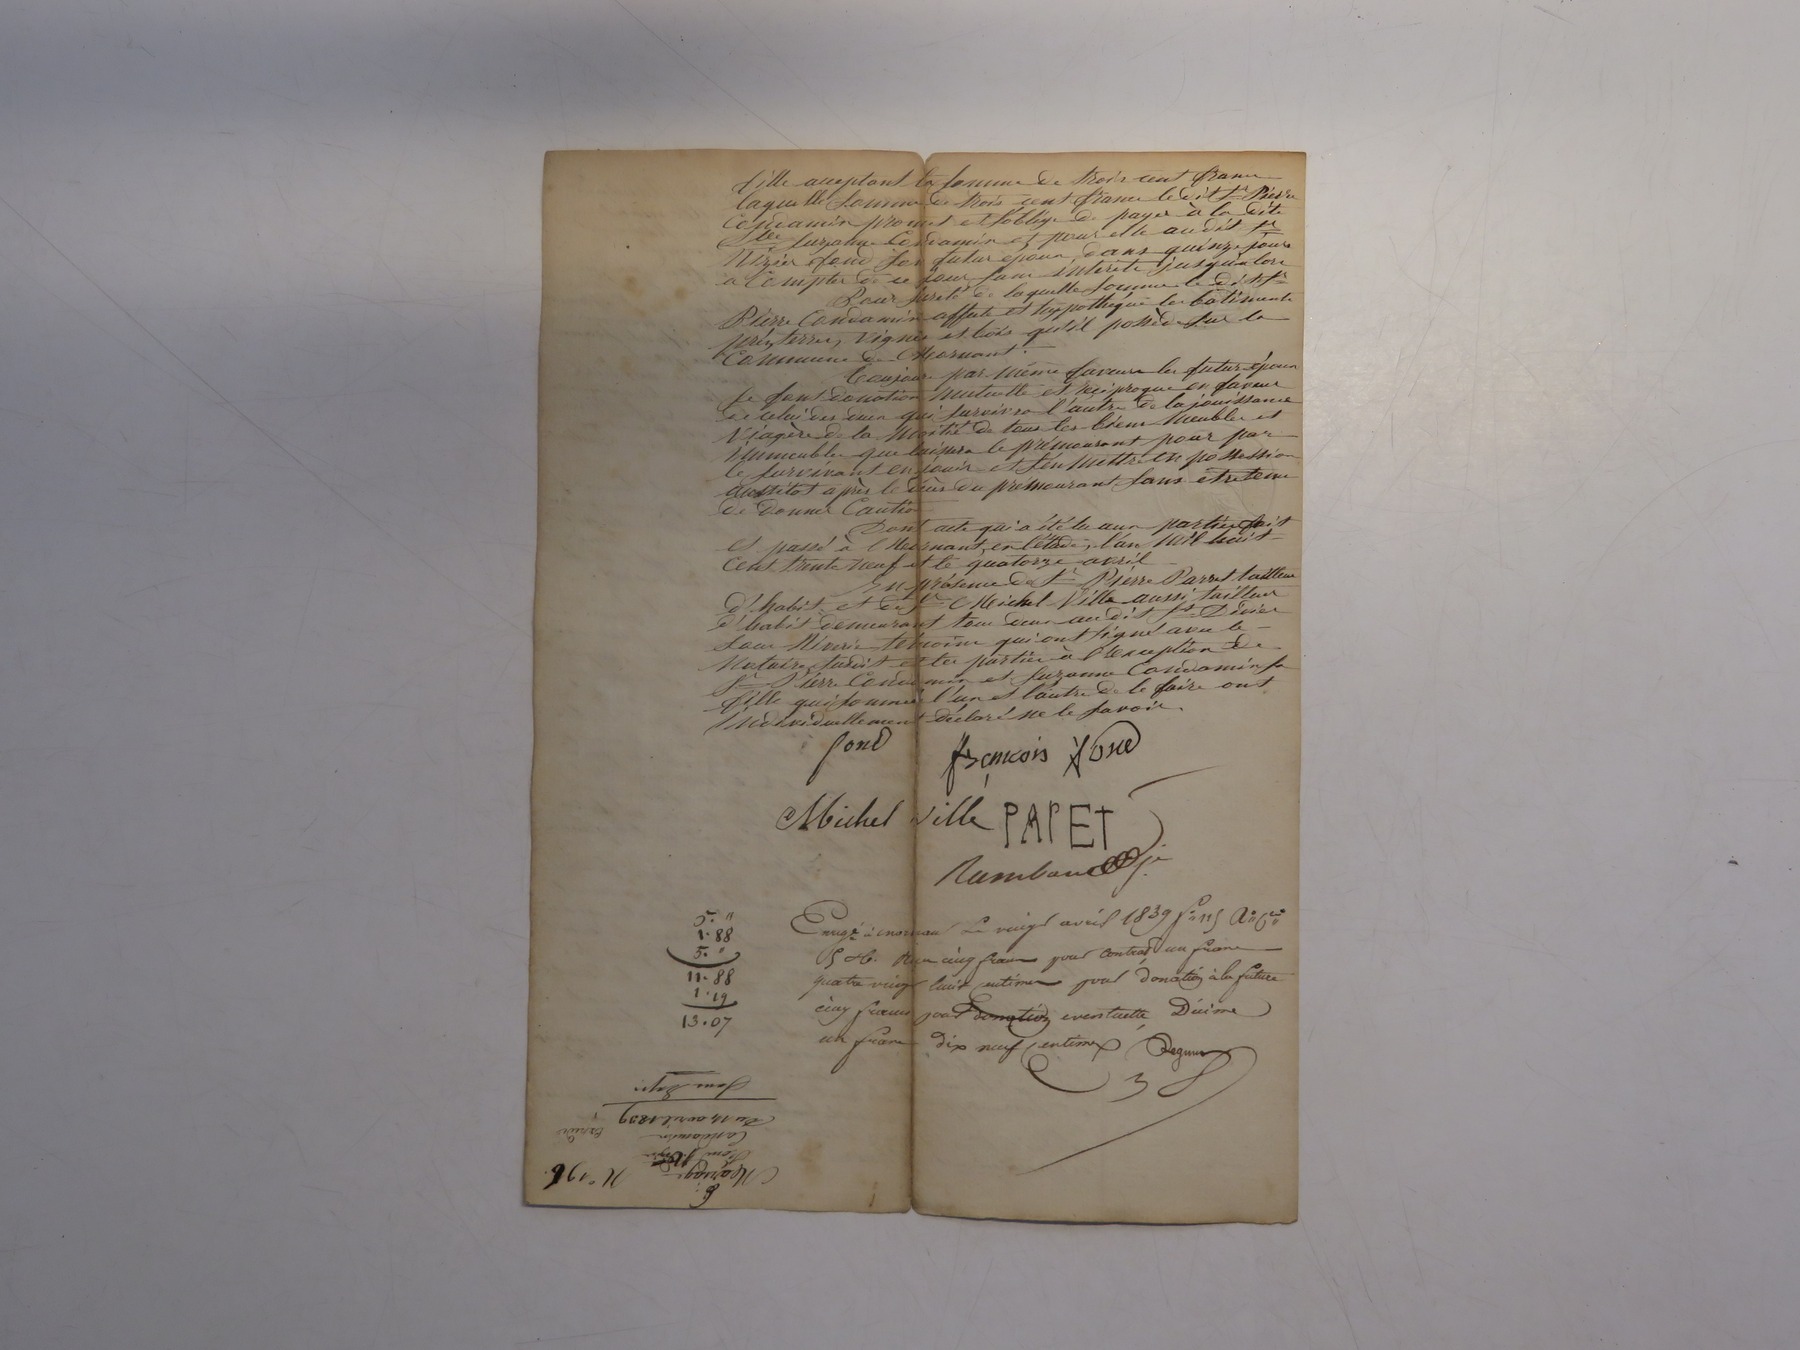 fille acceptant la somme de trois cent francs
laquelle somme de trois cent francs le dit Sr. Pierre
Condamin promet et s'oblige de payer à la dite
Suzanne Condamin et pour elle au dit Sr.
fond son futur époux, dans quinze jours
à compter de ce jour sans intérêts jusqu'alors
Pour sureté de laquelle somme le dit Sr.
Pierre Condamin affecte et hypothéque les bâtiments
prés, terres, vignes et bois qu'il possède sur la
Commune de Mornant.
Toujours par même faveur les futurs époux
se font donation mutuelle et réciproque en faveur
de celui des deux qui survivra l'autre de la jouissance
viagère de la moitié de tous les biens meubles et
immeubles que laissera le prémourant pour par
le survivant en jouir et s'en mettre en possession
aussitot après le décès du prémourant sans être tenu
de donner Caution
Dont acte qui a été lu aux parties fait
et passé à Mornant, en l'étude, l'an mil huit
cent trente neuf et le quatorze avril
En présence de Sr. Pierre Papet tailleur
d'habit, et de Sr. Michel Ville aussi tailleur
d'habit demeurant tous deux au dit St. Didier
sous Riverie témoins qui ont signé avec le
Notaire susdit et les parties à l'exception de
Sr. Pierre Condamin et Suzanne Condamin sa
fille qui sommés l'un et l'autre de le faire ont
individuellement déclaré ne le savoir.
fond françois fond
Michel Ville PAPET
5. "
1.88
5. "
11.88
1.19
13.07
Enregé à mornant le vingt avril 1839 fo 115
Reçu cinq francs pour contrat un franc
quatre vingt huit centimes pour donation à la future
cinq francs pour donation eventuelle Décime
un franc dix neuf centimes
Mariage
Condamin
Du 14 avril 1839
N° 196